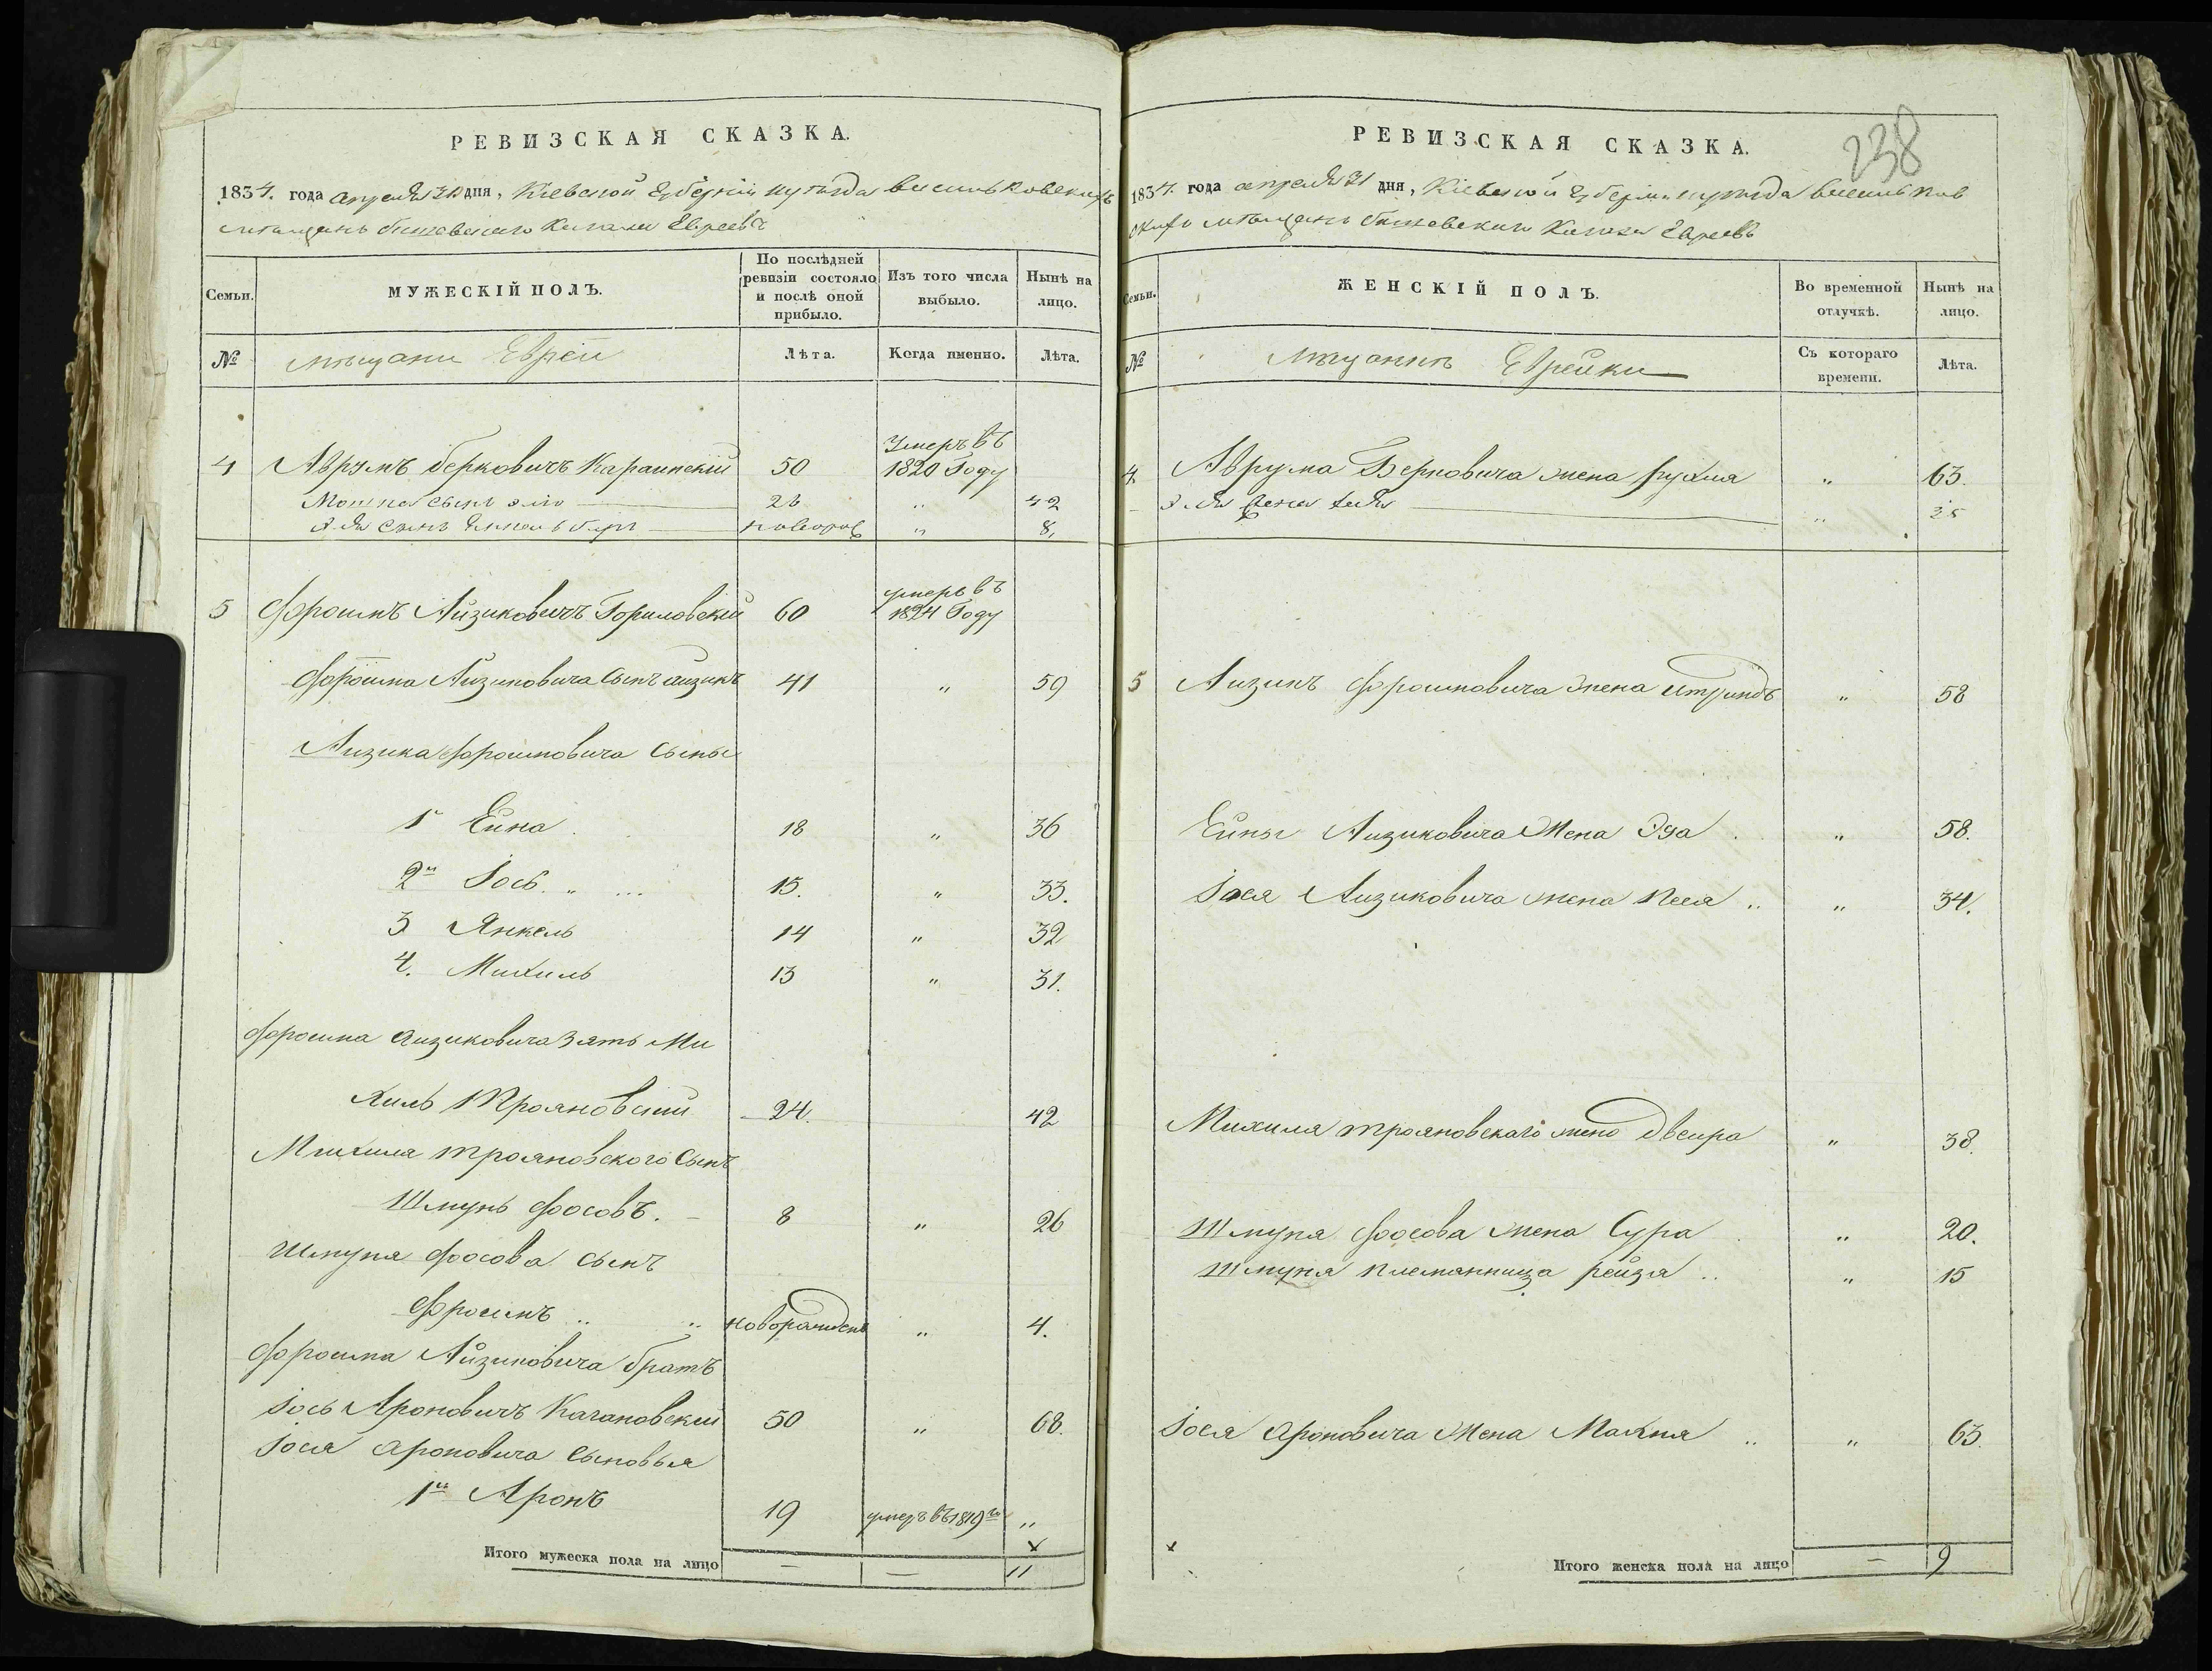 РЕВИЗСКАЯ СКАЗКА.
1834. года апреля дня, Кіевской Губерніи уезда
мѣщанъ Кагала Евреевъ
Семьи.
МУЖЕСКІЙ ПОЛЪ.
По послѣдней ревизіи состояло и послѣ оной прибыло.
Изъ того числа выбыло.
Нынѣ на лицо.
№ мѣщани Евреи Лѣта. Когда именно. Лѣта.
Умеръ въ
4 Аврумъ Берковичъ 50 1820 Году
Мошко сынъ его 26 „ 42
сынъ „ 8.
умеръ въ
5 Фроимъ Айзиковичъ Гориловскій 60 1824 Году
Фроима Айзиковича сынъ айзикъ 41 „ 59
Айзика Фроимовича сыны
1й Ейна 18 „ 36
2й Іось 15. „ 33.
3 Янкель 14 „ 32
4. Михиль 13 „ 31.
Фроима айзиковича зять Ми
хиль Трояновскій 24. 42
Михиля трояновского сынъ
Шмунь Фросовъ. 8 „ 26
Шмуня Фросова сынъ
Фроимъ новорожденъ „ 4.
Фроима Айзиковича братъ
Іось Ароновичъ Качановскій 50 „ 68.
Іося ароновича сыновья
1й Аронъ 19 умеръ въ 1819 „
Итого мужеска пола на лицо — — 11
238
РЕВИЗСКАЯ СКАЗКА.
1834. года апреля дня, Кіевской Губерніи уезда
мѣщанъ Кагала Евреевъ
Семьи.
ЖЕНСКІЙ ПОЛЪ.
Во временной отлучкѣ.
Нынѣ на лицо.
№ мѣщанки Еврейки Съ котораго времени. Лѣта.
4. Аврума Берковича жена рухля „ 63.
жена „ 35
5 Айзикъ Фроимовича жена „ 58
Ейны Айзиковича жена Эта „ 58.
Іося Айзиковича жена Песя „ 34.
Михиля трояновскаго жена Двейра „ 38.
Шмуня Фросова жена Сура „ 20.
Шмуня племянница рейзя „ 15
Іося ароновича жена Махня „ 63.
Итого женска пола на лицо — 9